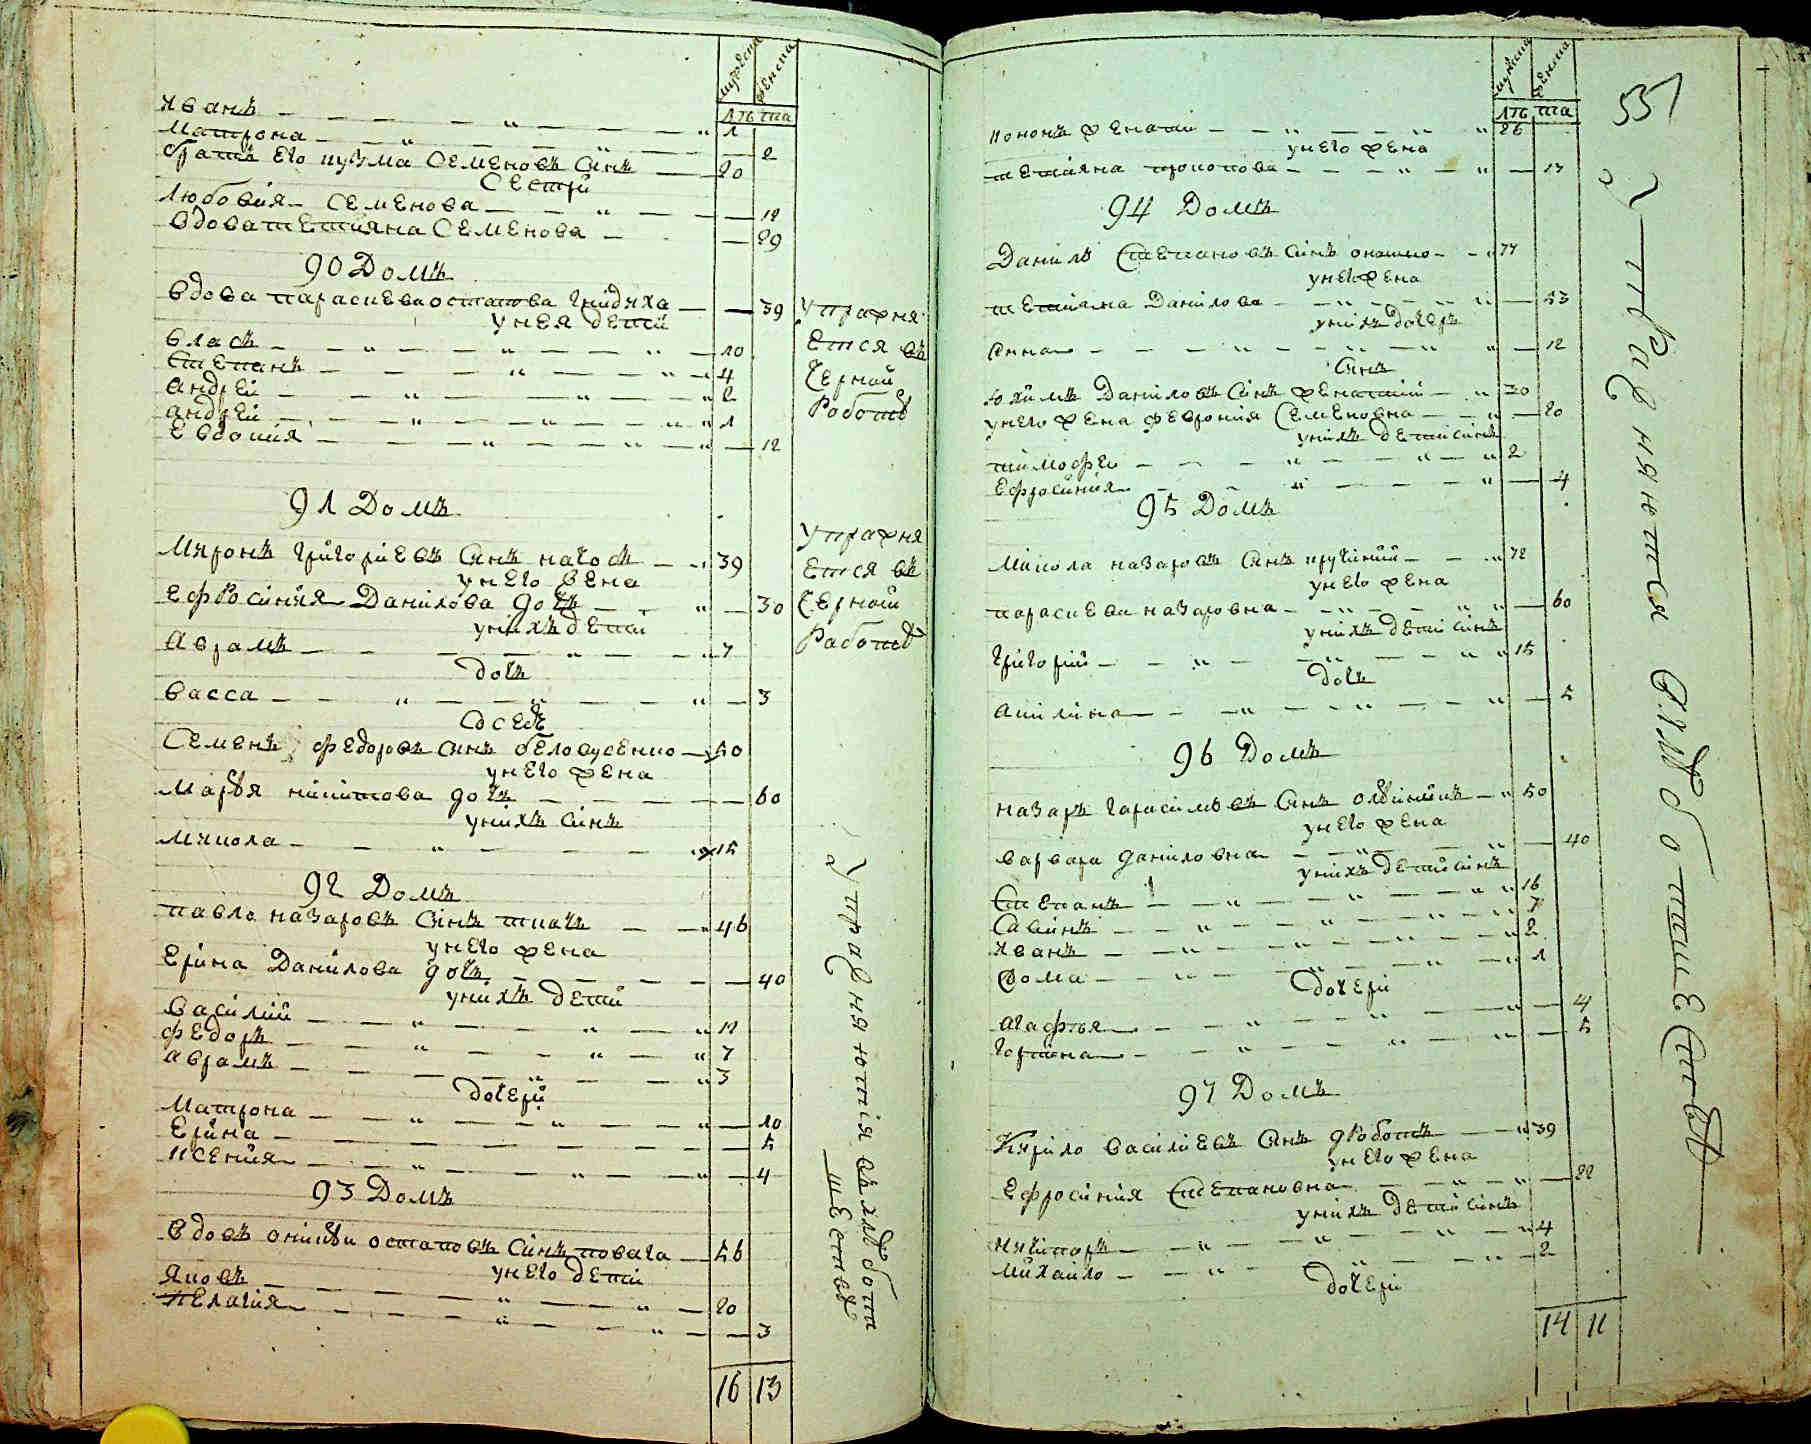 мужеска женска
лѣта
Иванъ 1
Матрона 2
братъ его кузма Семеновъ синъ 20
Сестри
Любовія Семенова 18
вдова тетіяна Семенова 29
90 Домъ
вдова параскева остапова гнидиха 39
у нея дети
власъ 10
Степанъ 4
андрей 2
андрей 1
Евдокия 12
упражня
ется въ
черной
работѣ
91 Домъ
Миронъ григориевъ синъ 39
у него жена
Ефросиния Данилова дочъ 30
у нихъ дети
Аврамъ 7
дочъ
васса 3
Соседъ
Семенъ федоровъ синъ белоусенко 50
у него жена
Марѣя никитова дочъ 60
у нихъ синъ
Микола 15
упражня
ется въ
черной
работѣ
92 Домъ
павло назаровъ синъ ткачъ 46
у него жена
Ерина Данилова дочъ 40
у нихъ дети
василий 12
федоръ 7
аврамъ 3
дочери
Матрона 10
Ерина 5
ксения 4
93 Домъ
вдовъ остаповъ синъ 56
у него дети
Яковъ 20
пелагия 3
упражняются въ хлѣбопа
шествѣ
16 13
551
мужеска женска
лѣта
кононъ женати 26
у него жена
тетіяна прокопова 23
94 Домъ
Данилъ Степановъ синъ 77
у него жена
тетіяна Данилова 53
у нихъ дочеръ
анна 12
синъ
юхимъ Даниловъ синъ женатий 30
у него жена феврония Семеновна 20
у нихъ дети синъ
тимофей 2
Ефросиния 4
95 Домъ
Микола назаровъ синъ 72
у него жена
параскева назаровна 60
у нихъ дети синъ
григорий 15
дочъ
акилина 5
96 Домъ
назаръ гарасимовъ синъ олѣйникъ 50
у него жена
варвара даниловна 40
у нихъ дети синъ
Степанъ 16
Савинъ 7
Иванъ 2
Фома 1
дочери
агафъя 4
горпина 5
97 Домъ
Кирило василиевъ синъ 39
у него жена
Ефросиния Степановна 22
у нихъ дети синъ
никифоръ 4
михайло 2
дочери
14 11
упражняются въ хлѣбопашествѣ